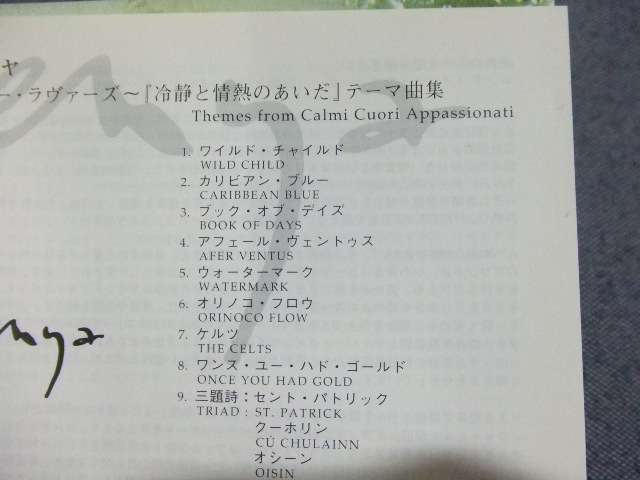 ヤ
ー・ラヴァーズ～『冷静と情熱のあいだ』テーマ曲集
Themes from Calmi Cuori Appassionati
1. ワイルド・チャイルド
WILD CHILD
2. カリビアン・ブルー
CARIBBEAN BLUE
3. ブック・オブ・デイズ
BOOK OF DAYS
4. アフェール・ヴェントゥス
AFER VENTUS
5. ウォーターマーク
WATERMARK
6. オリノコ・フロウ
ORINOCO FLOW
7. ケルツ
THE CELTS
8. ワンス・ユー・ハド・ゴールド
ONCE YOU HAD GOLD
9. 三題詩：セント・パトリック
TRIAD : ST. PATRICK
クーホリン
CÚ CHULAINN
オシーン
OISIN
nya
enya